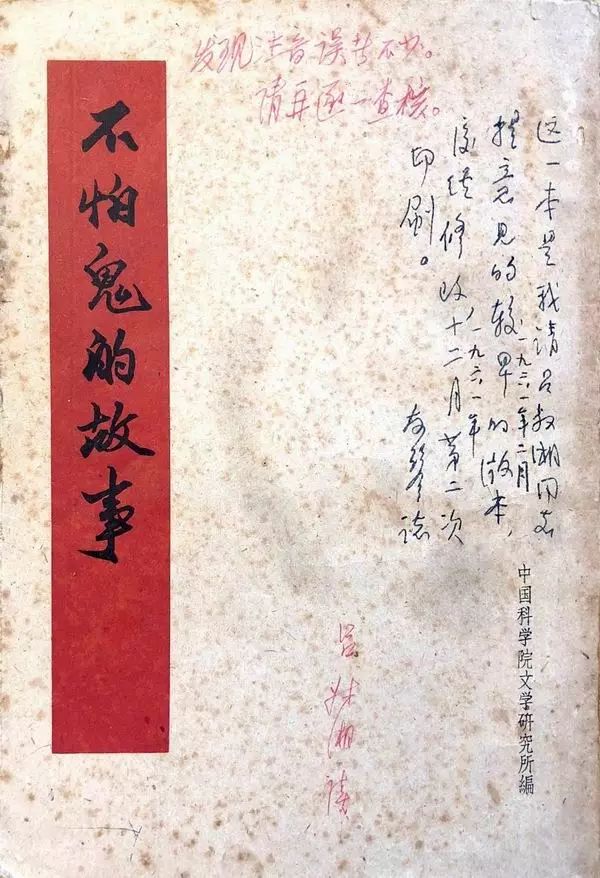 发现注音误者不少。
请再逐一查核。
不怕鬼的故事
这一本是我请吕叔湘同志
一九六一年二月
提意见的较早的版本，
後经修改十二月第二次
一九六一年
印刷。
友琴誌
中国科学院文学研究所编
吕叔湘